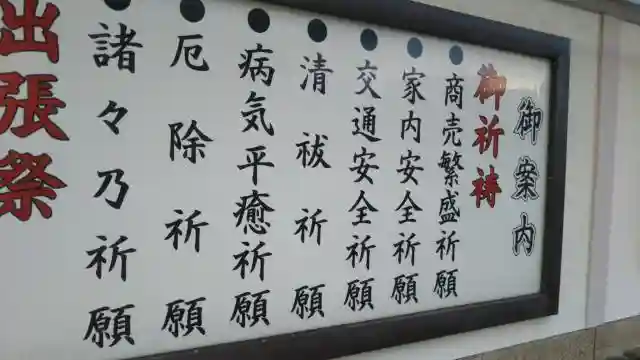 御案内
御祈祷
商売繁盛祈願
家内安全祈願
交通安全祈願
清祓祈願
病気平癒祈願
厄除祈願
諸々乃祈願
出張祭